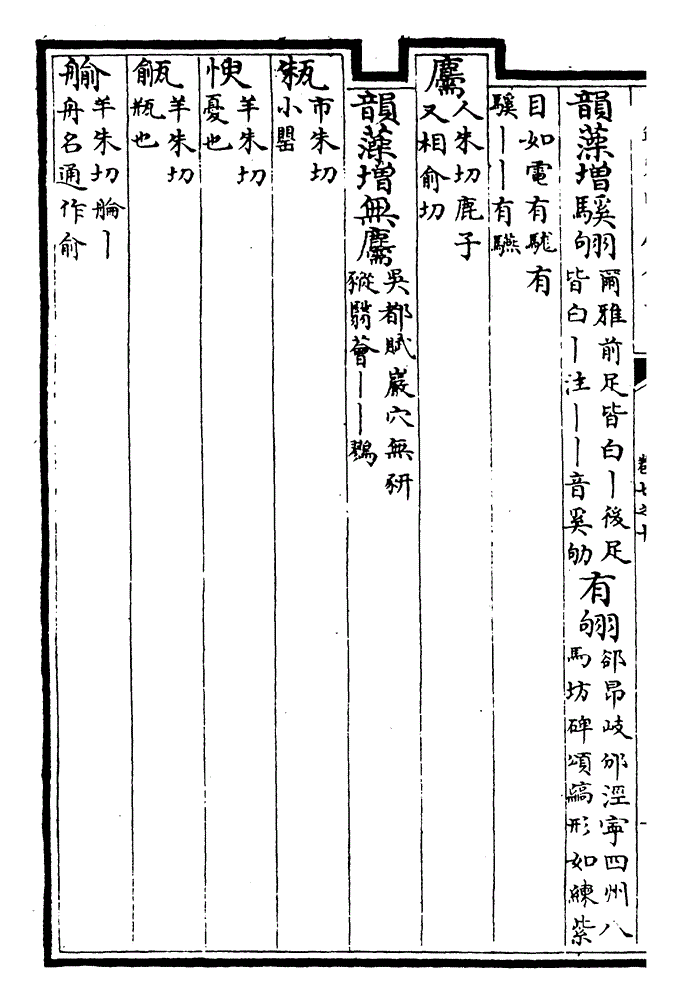 韻藻增騱翑爾雅前足皆白丨後足
皆白丨注丨丨音奚劬有翑郤昂岐邠涇寧四州八
馬坊碑頌縞形如練紫
目如電有駹有
騱丨丨有驠
𪋯人朱切鹿子
又相俞切
韻藻增無𪋯吳都賦巖穴無豜
豵翳薈丨丨鷚
㼡市朱切
小罌
㥚羊朱切
憂也
㼶羊朱切
瓶也
羊朱切丨
舟名通作俞
卷七之十